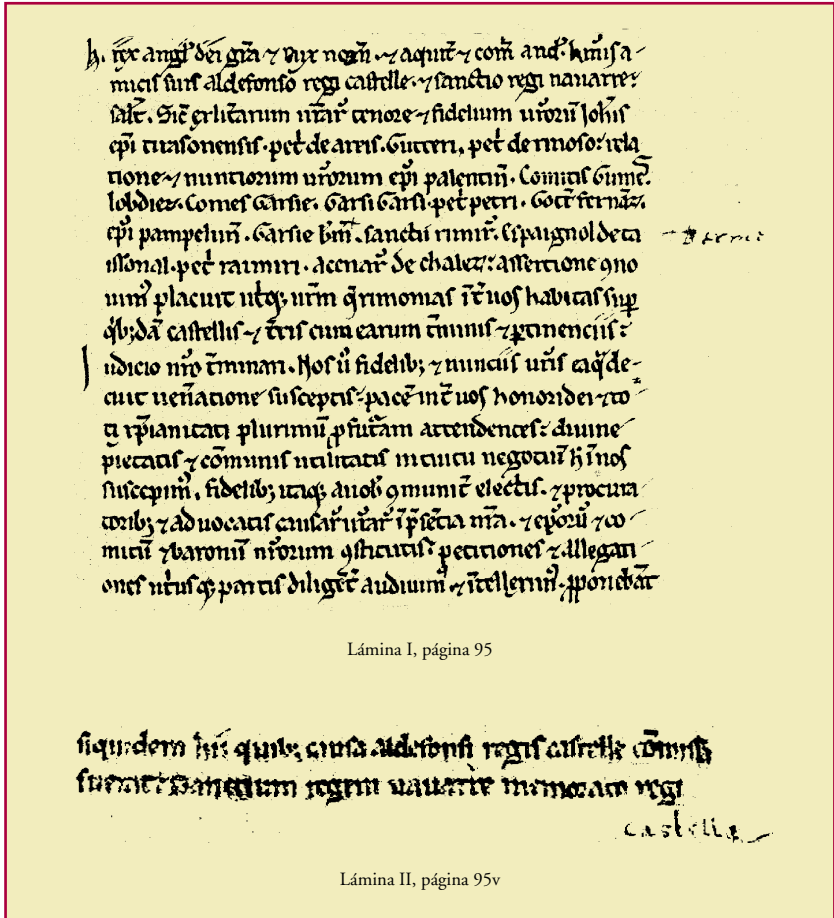 h. rex angl' dei gr̃a ⁊ dux norm̃. ⁊ aquit̃ ⁊ com̃ and'. kr̃mis a-
micis suis aldefonso regi castelle. ⁊ sanctio regi nauarre:
salt̃. Sic̃ ur̃ar̃ tenore ⁊ fidelium ur̃orũ Joh̃is
ep̃i tirasonensis. pet̃ de areis. Gutteri, pet̃ de rinoso: rela
tione ⁊ nuntiorum ur̃orum ep̃i palentiñ. Comitis Gume.
lobdiez. Comes Garsie. Garsi Garsi. pet̃ petri. Got̃ fernãz.
ep̃i pampeluñ. Garsie bm̃. sanctii rimir̃. Espaignol de ta
issonal. pet̃ raimiri. accnar̃ de chalez: assertione ꝯno
uim' placuit ut̃q; ur̃m q̃rimonias ĩt̃ uos habitas sup̃
q'b;dã castellis ⁊ t̃ris cum earum t̃minis ⁊ ꝑtinenciis:
iudicio nr̃o t̃minari. Nos ũ fidelib; ⁊ nunciis ur̃is eaq̃ de-
cuit uen̄atione susceptis: pacẽ int̃ uos honori dei ⁊ to
ti xp̃ianitati plurimũ ꝓfut̃am attendentes: diuine
pietatis ⁊ cõmunis utilitatis intuitu negotiũ h̃ĩ nos
suscepim', fidelib; itaq; a uob̃ ꝯmunit̃ electis. ⁊ procura
torib; ⁊ aduocatis causar̃ ur̃ar̃ ĩ p̃sẽtia nr̃a. ⁊ ep̃orũ ⁊ co-
mitũ ⁊ baroniũ nr̃orum ꝯstitutis: petitiones ⁊ allegati
ones ut̃usq; partis diligẽt̃ audiuim' ⁊ ĩtellexim'. ꝓponebãt
Lámina I, página 95
siquidem hii quib; causa aldefonsi regis castelle cõmissa
fuerat: Sanctium regem nauarre memorato regi
castelle
Lámina II, página 95v